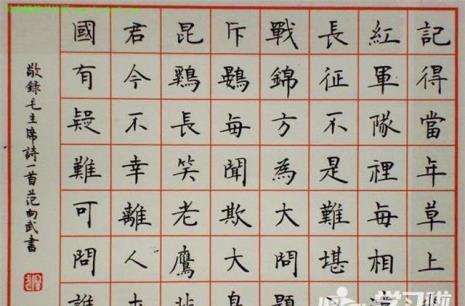 記得當年草上
紅軍隊裡每相
長征不是難堪
戰錦方為大問題
斥鷃每聞欺大
昆鷄長笑老鷹
君今不幸離人
國有疑難可問誰
敬錄毛主席詩一首范向武書
学习啦